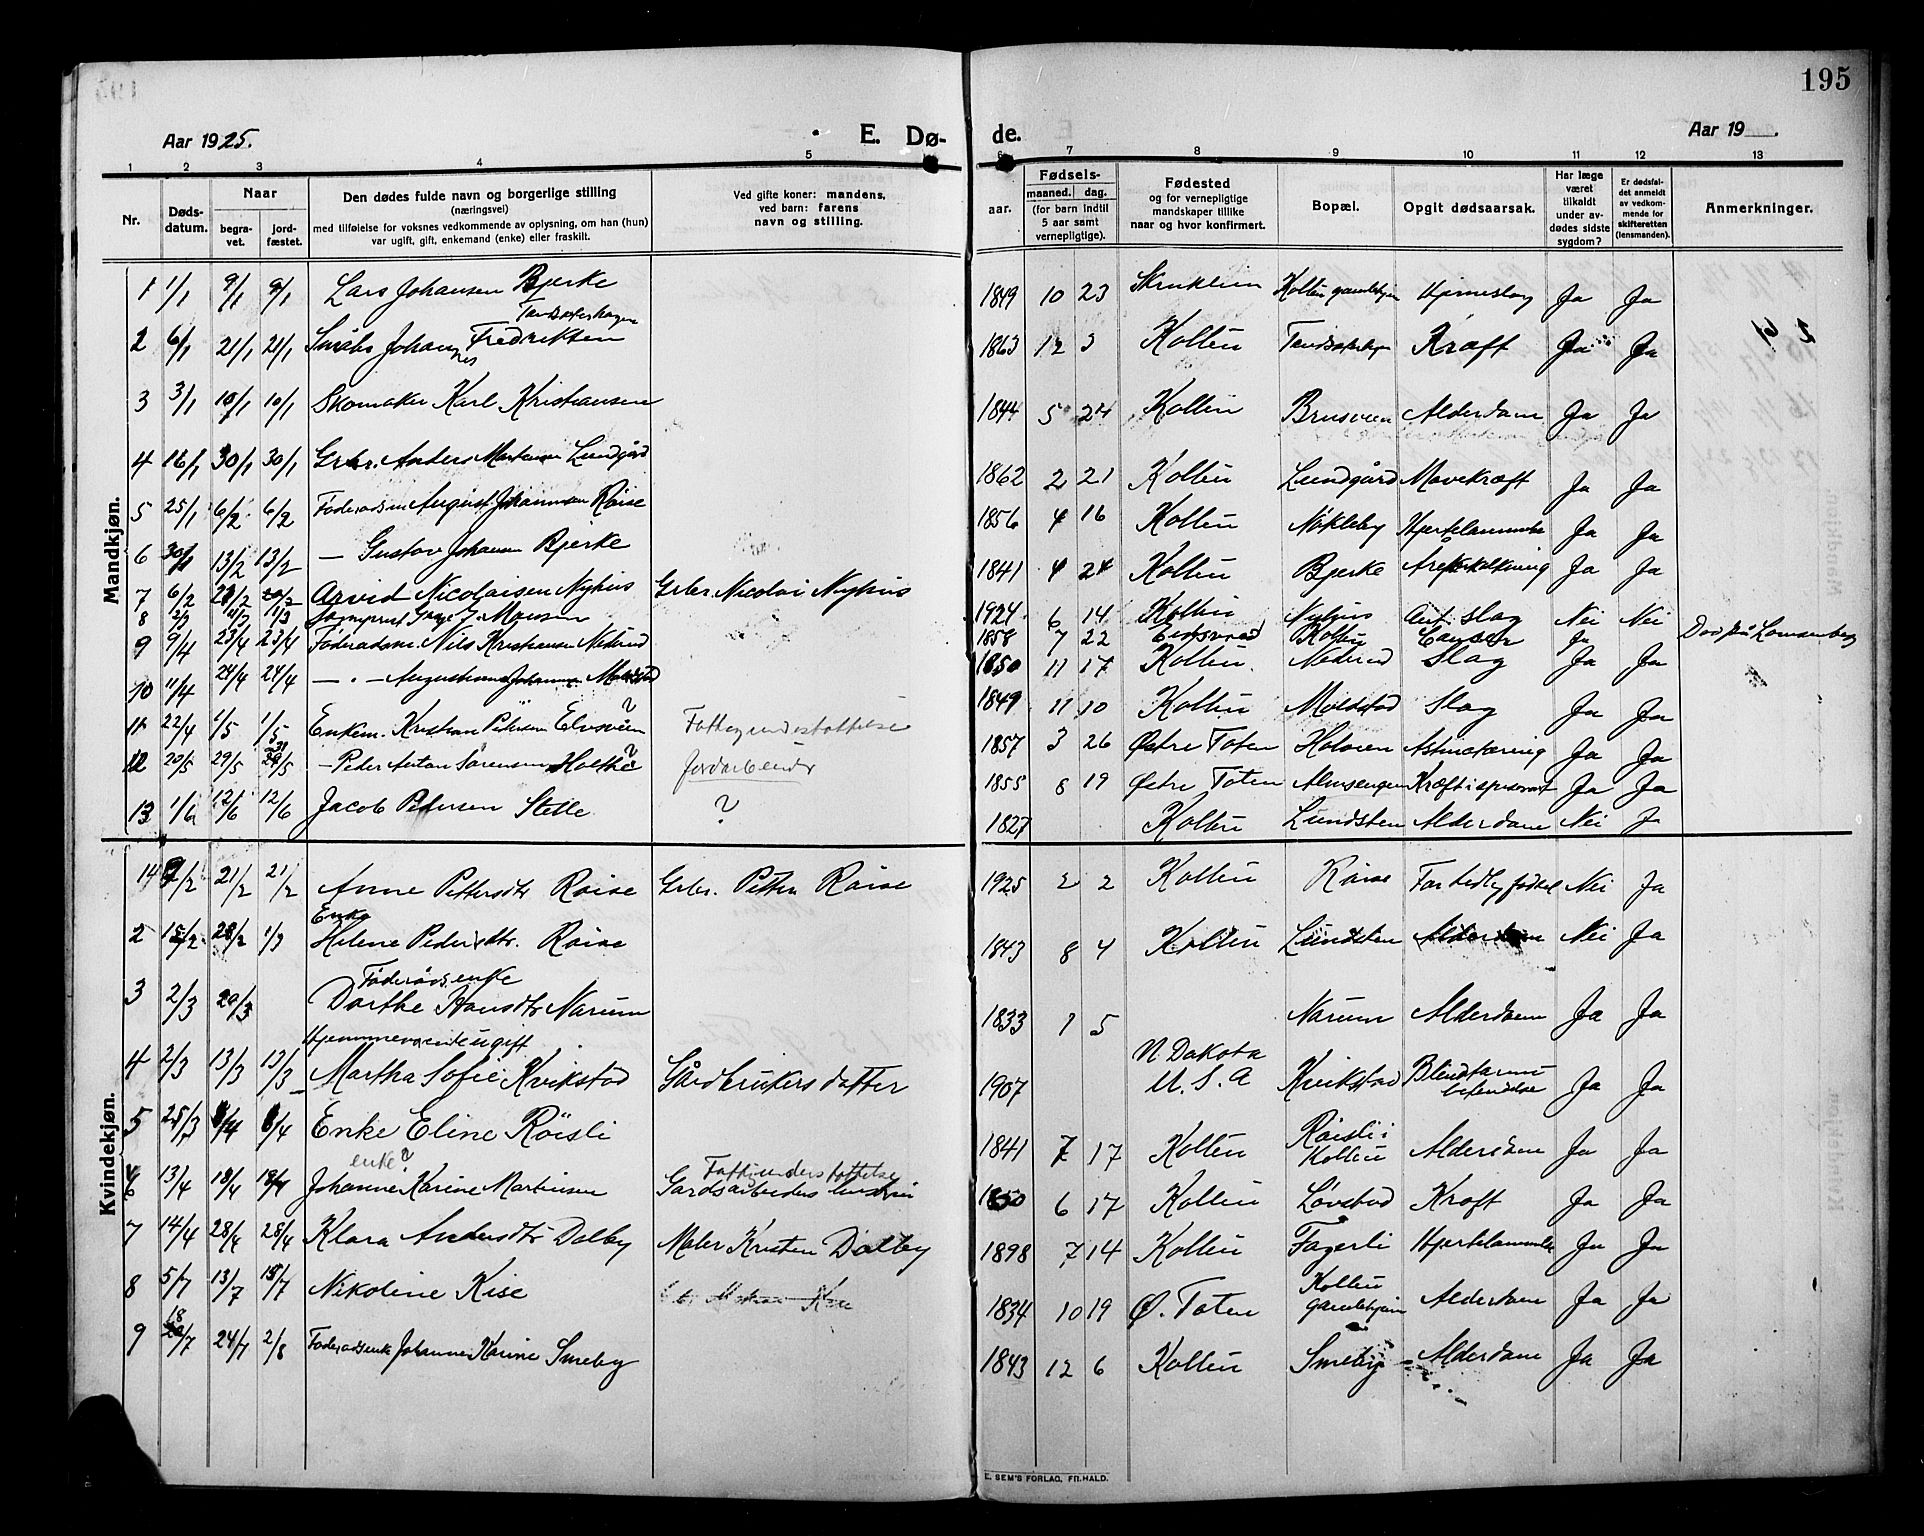 195
Aar 1925. E. Dø- de. Aar 19 .
1 2 3 4 5 6 7 8 9 10 11 12 13
Nr.
Døds-
datum.
Naar
begra-
vet.
jord-
fæstet.
Den dødes fulde navn og borgerlige stilling
(næringsvei)
med tilføielse for voksnes vedkommende av oplysning, om han (hun)
var ugift, gift, enkemand (enke) eller fraskilt.
Ved gifte koner: mandens,
ved barn: farens
navn og stilling.
aar.
Fødsels-
maaned. dag.
(for barn indtil
5 aar samt
vernepligtige).
Fødested
og for vernepligtige
mandskaper tillike
naar og hvor konfirmert.
Bopæl.
Opgit dødsaarsak.
Har læge
været
tilkaldt
under av-
dødes sidste
sygdom?
Er dødsfal-
det anmeldt
av vedkom-
mende for
skifteretten
(lensmanden).
Anmerkninger.
Mandkjøn.
1 1/1 9/1 9/1 Lars Johansen Bjerke 1849 10 23 Kolbu gamlehjem Hjerneslag Ja Ja
2 6/1 21/1 21/1 Johannes Fredriksen 1863 12 3 Kolbu Kræft Ja Ja
3 3/1 10/1 10/1 Skomaker Karl Kristiansen 1844 5 24 Kolbu Brusveen Alderdom Ja Ja
4 16/1 30/1 30/1 Grbr. Anders Martinsen Lundgård 1862 2 21 Kolbu Lundgård Mavekræft Ja Ja
5 25/1 6/2 6/2 Føderådsm August Johannesen Røise 1856 4 16 Kolbu Nøkleby Hjertelammelse Ja Ja
6 30/1 13/2 13/2 — Gustav Johansen Bjerke 1841 4 24 Kolbu Bjerke Årekalkning Ja Ja
7 6/2 Arvid Nicolaisen Nyhus Grbr. Nicolai Nyhus 1924 6 14 Kolbu Nyhus Slag Nei Nei
8 2/3 11/3 11/3 1858 7 22 Eidsvold Kolbu Cancer Ja
9 9/4 23/4 23/4 Føderaadsm. Nils Kristiansen Nederud 1850 11 17 Kolbu. Nederud Slag Ja Ja
10 11/4 24/4 24/4 — " — Augustinus Johannesen 1849 11 10 Kolbu Slag Ja Ja
11 22/4 1/5 1/5 Enkem. Kristian Petersen Elvsveen? Fattigunderstøttelse 1857 3 26 Østre Toten Holveen Ja Ja
12 20/5 29/5 29/5 — Peder Anton Sørensen Holthe? Jordarbeider 1855 8 19 Østre Toten Almsengen Kræft i spiserøret Ja Ja
13 1/6 12/6 12/6 Jacob Pedersen Stelle ? 1827 Kolbu Lundsten Alderdom Nei J
Kvindekjøn.
1 21/2 21/2 Anne Pettersdtr Røise Grbr. Petter Røise 1925 2 2 Kolbu Røise For tidlig fødsel Nei Ja
Enke
2 15/2 28/2 1/3 Helene Pedersdtr. Røise 1843 8 4 Kolbu Lundsten Alderdom Nei Ja
Føderådsenke
3 2/3 20/3 Dorthe Hansdtr Narum 1833 1 5 Narum Alderdom Ja Ja
Hjemmeværende ugift N. Dakota
4 2/3 13/3 13/3 Martha Sofie Kvikstad Gårdbrukers datter 1907 U. S. A Kvikstad Blindtarmsbetendelse Ja Ja
5 25/3 Enke Eline Røisli 1841 7 17 Kolbu Røisli i Kolbu Alderdom Ja Ja
enke? Fattigunderstøttelse
6 13/4 18/4 18/4 Johanne Karine Martinsen Gardsarbeiders hustru 1850 6 17 Kolbu Løvstad Kræft Ja Ja
7 14/4 28/4 28/4 Klara Andersdtr Dalby Maler Kristen Dalby 1898 7 14 Kolbu Fagerli Hjertelammelse Ja Ja
8 5/7 13/7 13/7 Nikoline Kise 1834 10 19 Ø. Toten Kolbu gamlehjem Alderdom Ja Ja
9 18/7 24/7 2/8 Føderådsenke Johanne Karine Smeby 1843 12 6 Kolbu Smeby Alderdom Ja Ja
E. SEM'S FORLAG, FR.HALD.